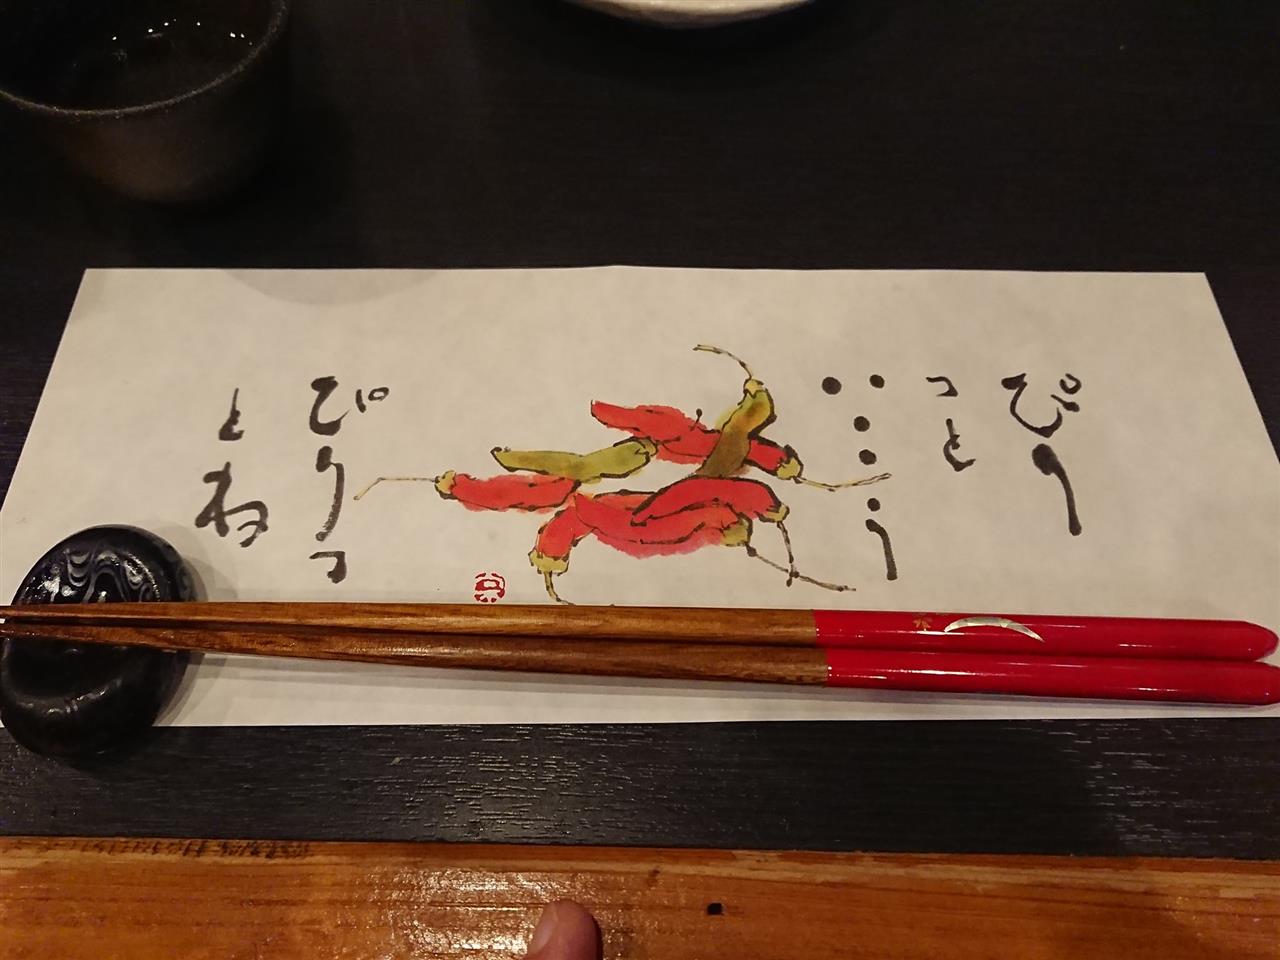 ぴり
っと
・・・・・う
ぴりっ
とね